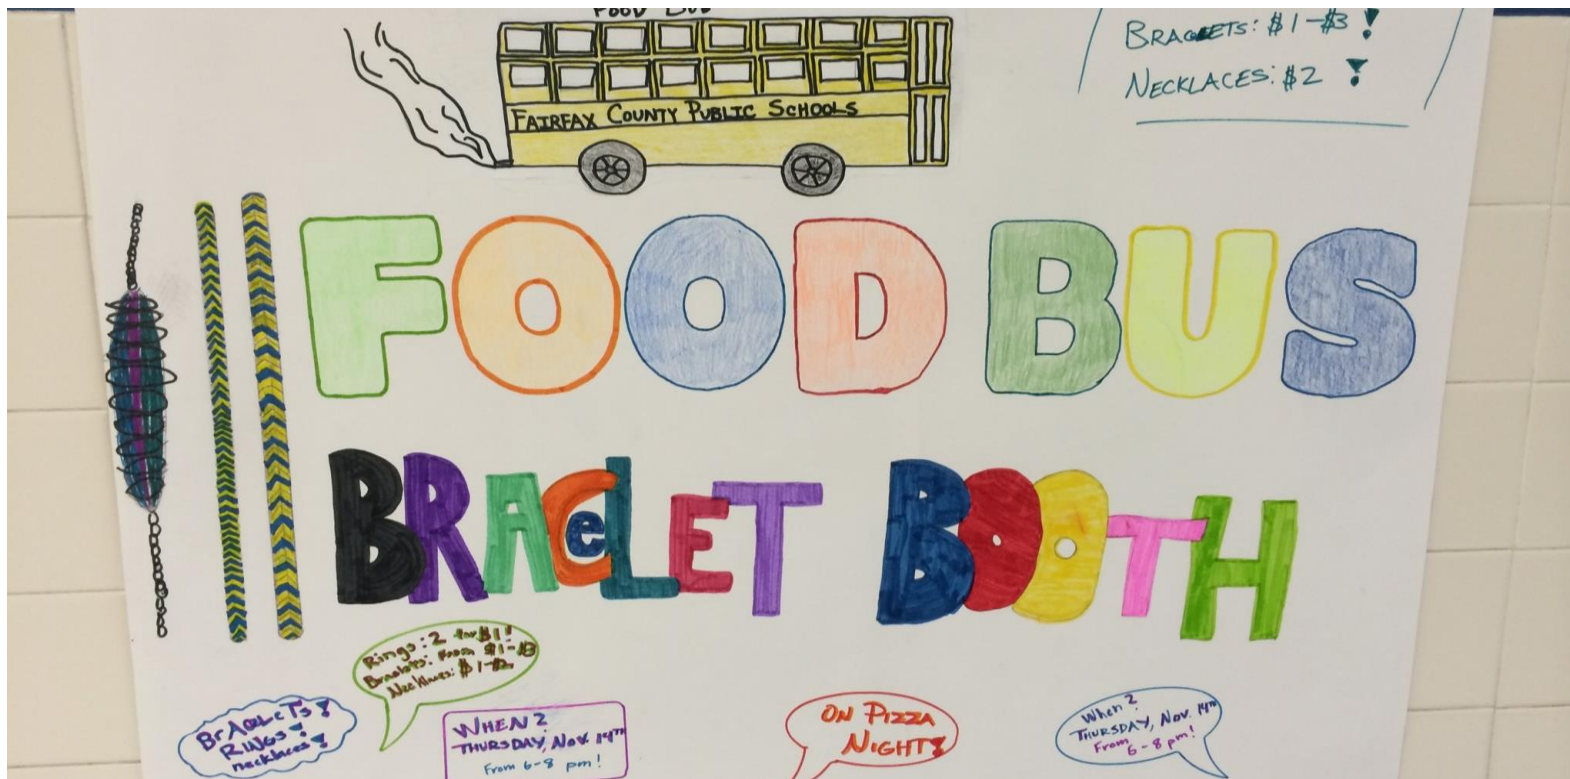 FOOD BUS
BRACLETS: $1-$3!
NECKLACES: $2!
FAIRFAX COUNTY PUBLIC SCHOOLS
FOOD BUS
BRACeLET BOOTH
Rings: 2 for $1!
Braclets: From $1-$3
Necklaces: $1-$2
BrAceLeTs!
RINGs!
necklaces!
WHEN?
THURSDAY, Nov. 14TH
From 6-8 pm!
ON PIZZA
NIGHT!
When?
THURSDAY, Nov. 14TH
From
6-8 pm!